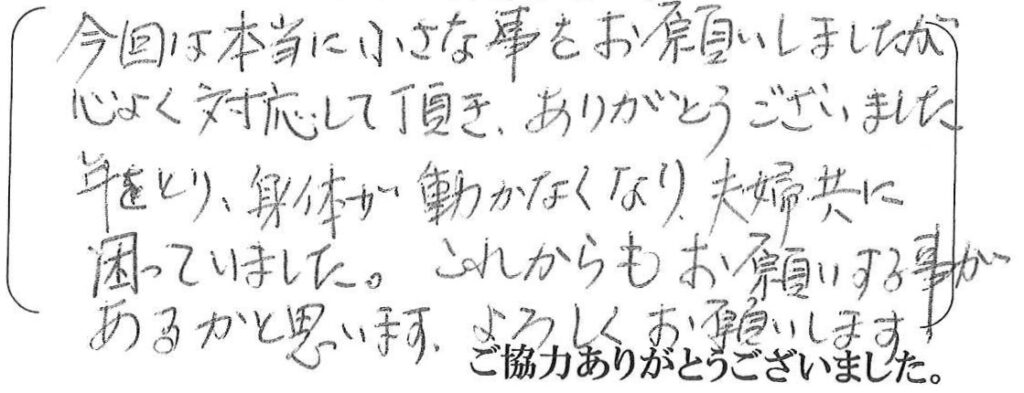 今回は本当に小さな事をお願いしましたが
心よく対応して頂き、ありがとうございました
年をとり、身体が動かなくなり、夫婦共に
困っていました。これからもお願いする事が
あるかと思います、よろしくお願いします。
ご協力ありがとうございました。